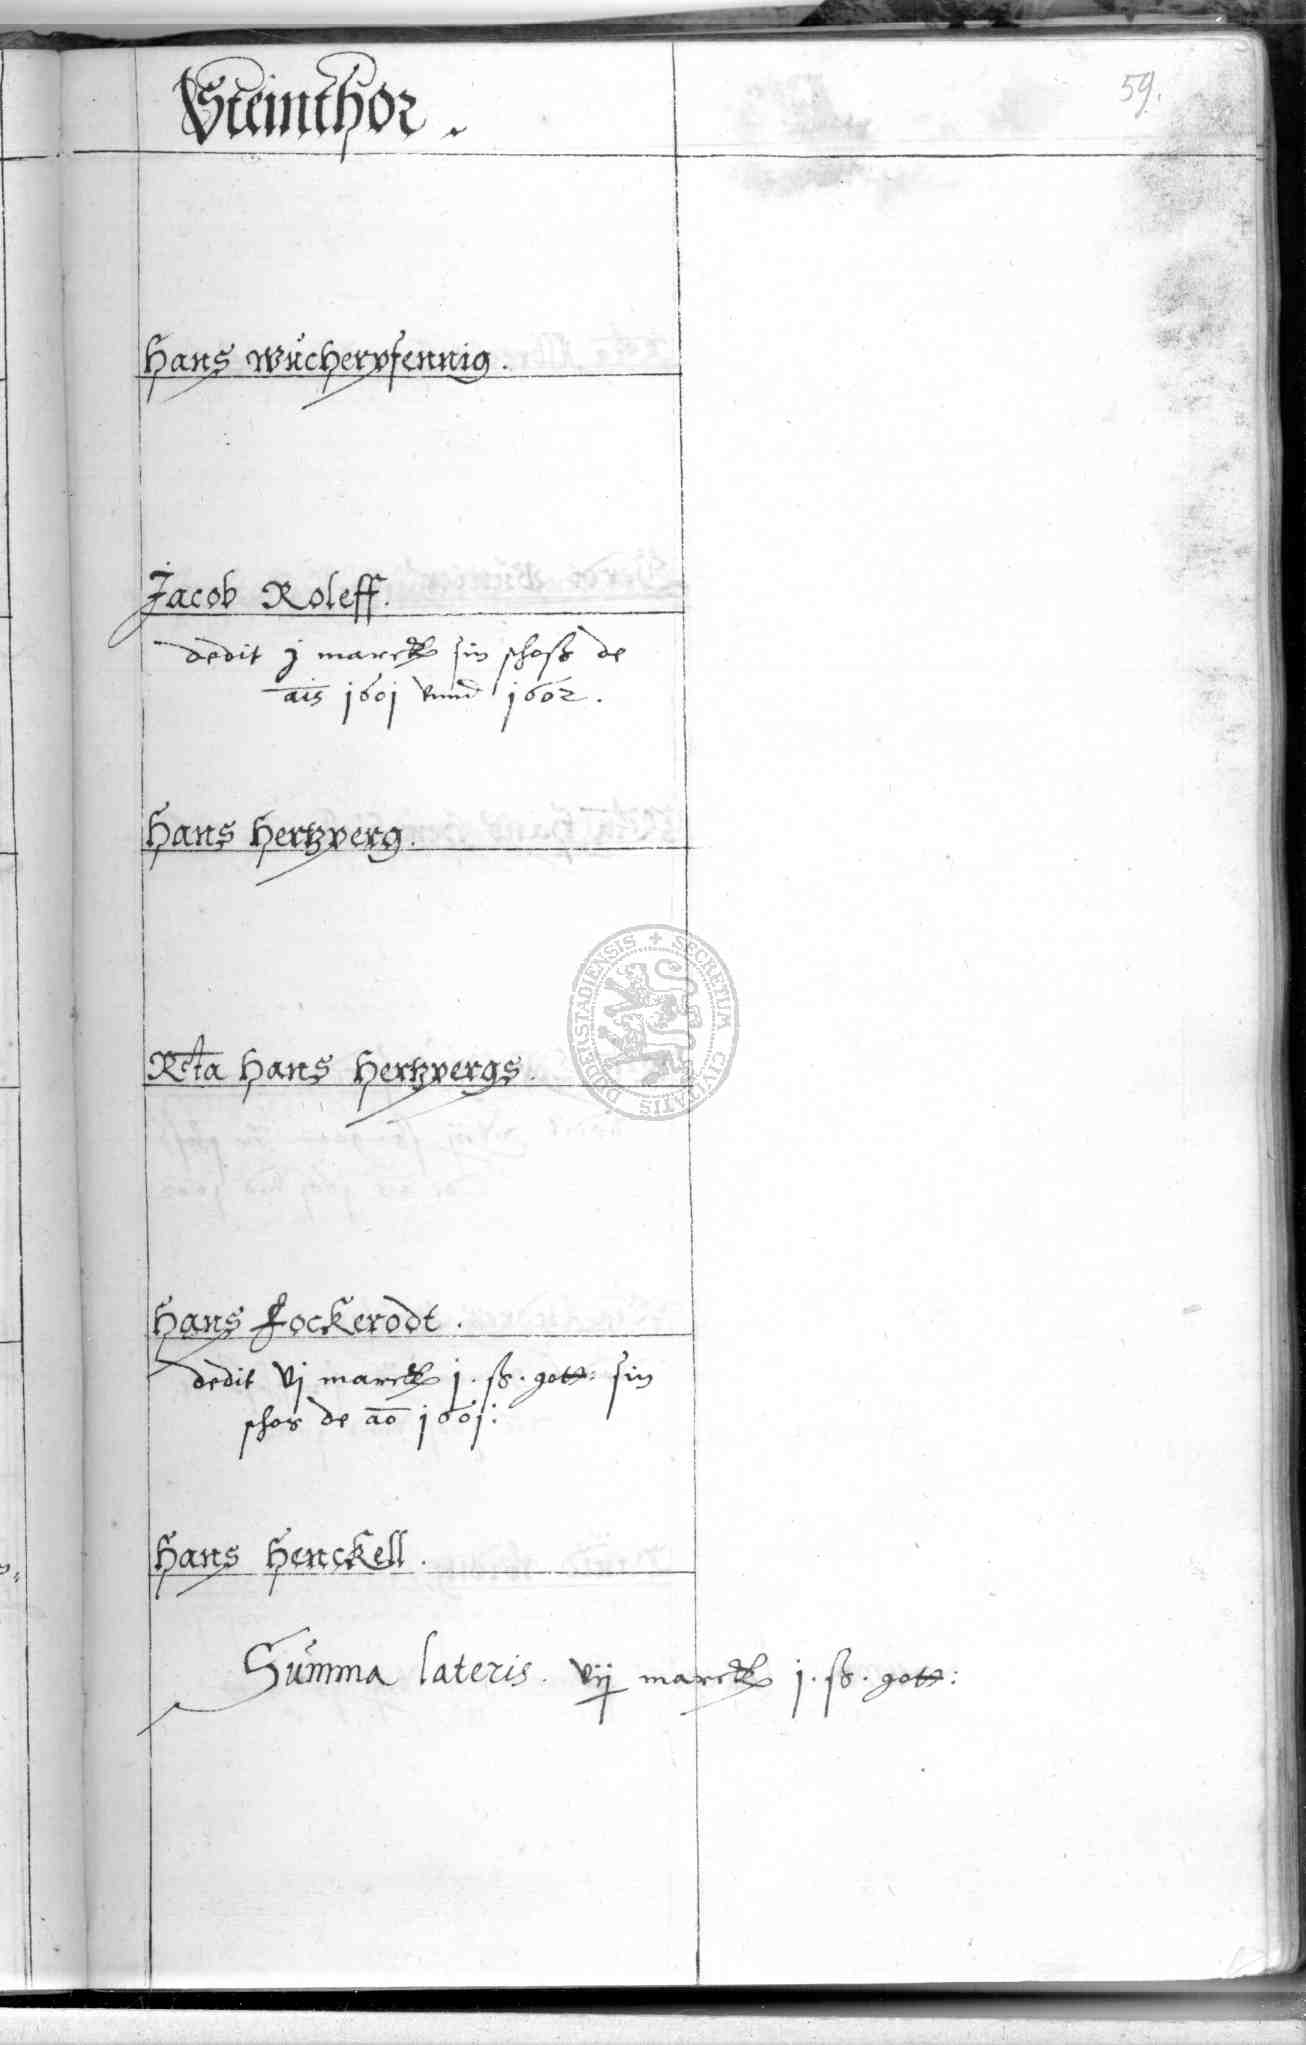 Steinthor.
59.
Hans Wucherpfennig.
Jacob Roleff.
dedit j marck sin schoß de
ais 1601 vnnd 1602.
Hans Hertzperg.
Rcta Hans Hertzpergs.
Hans Fockerodt.
dedit vj marck j. ß. gott: sin
schos de ao 1601:
Hans Henckell.
Summa lateris. vij marck j. ß. gott:
SECRETUM CIVITATIS DUDERSTADIENSIS